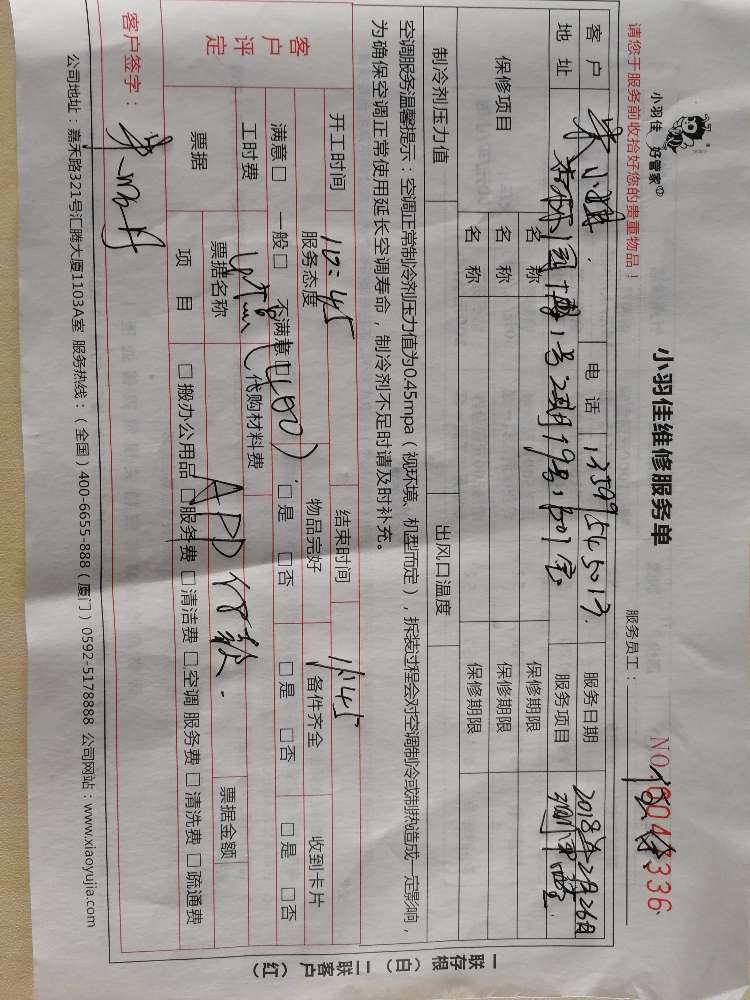 小羽佳 好管家
小羽佳维修服务单
请您于服务前收拾好您的贵重物品！
服务员工：
客户 电话 13599545013 服务日期 2018年2月26日
地址 服务项目
保修项目 名称 保修期限
名称 保修期限
名称 保修期限
制冷剂压力值 出风口温度
空调服务温馨提示：空调正常制冷剂压力值为0.45mpa（视环境、机型而定），拆装过程会对空调制冷或制热造成一定影响，
为确保空调正常使用延长空调寿命，制冷剂不足时请及时补充。
开工时间 10:45 结束时间 11:45
客户评定 服务态度 物品完好 备件齐全 收到卡片
满意□ 一般□ 不满意□ □是 □否 □是 □否 □是 □否
工时费 (400) 代购材料费
票据 票据名称 APP付款. 票据金额
项目 □搬办公用品 □服务费 □清洁费 □空调服务费 □清洗费 □疏通费
客户签字：
公司地址：嘉禾路321号汇腾大厦1103A室 服务热线：（全国）400-6655-888（厦门）0592-5178888 公司网站：www.xiaoyujia.com
一联存根（白）二联客户（红）